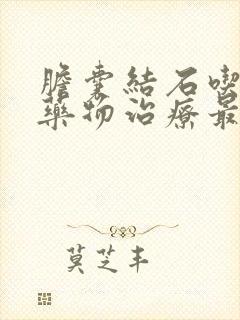 膽囊結石喫
藥物治療最
莫芝丰